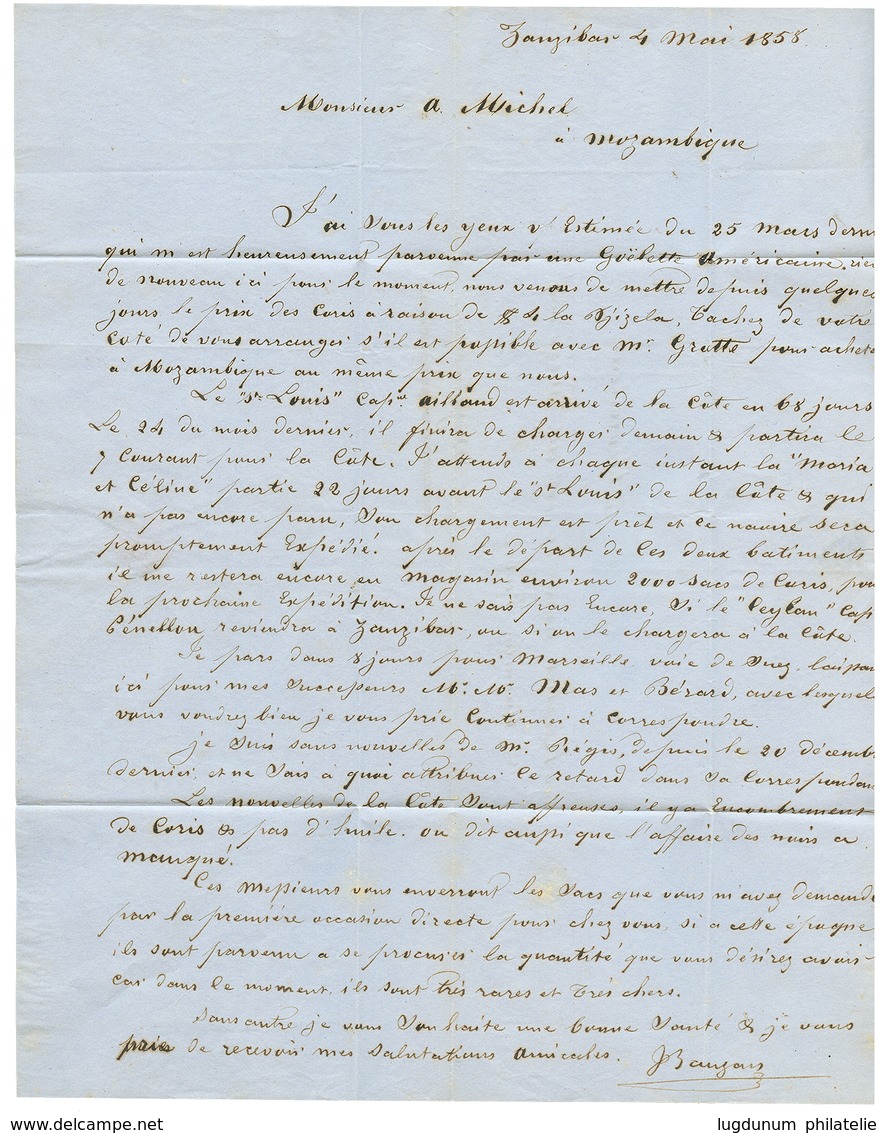 Zanzibar 4 Mai 1858.
Monsieur A. Michel
à Mozambique
J'ai sous les yeux v/ Estimée du 25 Mars dern
qui m'est heureusement parvenue par une Goëlette Américaine, rien
de nouveau ici pour le moment, nous venons de mettre depuis quelques
jours le prix des Coris à raison de $ 4 la Djizela, tachez de votre
coté de vous arranger s'il est possible avec Mr. Grotte pour acheter
à Mozambique au même prix que nous.
Le "St. Louis" Capne Aillaud est arrivé de la Côte en 68 jours
Le 24 du mois dernier, il finira de charger demain & partira le
7 Courant pour la Côte. J'attends à chaque instant la "Maria
et Céline" partie 22 jours avant le "St Louis" de la Côte & qui
n'a pas encore paru, Son chargement est prêt et ce navire sera
promptement Expédié. après le départ de ces deux batiments
il me restera encore en magasin environ 2000 sacs de Coris, pour
la prochaine Expédition. Je ne sais pas Encore, Si le "Ceylan" Cap
Pénellon reviendra à Zanzibar, ou si on le chargera à la Côte.
Je pars dans 8 jours pour Marseille voie de Suez, laissant
ici pour mes Successeurs Mr. Mr. Mas et Bérard, avec lesquels
vous voudrez bien je vous prie Continuer à Correspondre.
je suis sans nouvelles de Mr. Régis, depuis le 20 décembre
dernier, et ne sais à quoi attribuer ce retard dans sa Correspondan
Les nouvelles de la Côte sont affreuses, il y a Encombrement
de Coris & pas d'huile. on dit aussi que l'affaire des noirs a
manqué.
Ces Messieurs vous enverront les Sacs que vous m'avez demandé
par la première occasion directe pour chez vous, si a cette époque
ils sont parvenu a se procurer la quantité que vous désirez avoir
car dans le moment ils sont très rares et très chers.
Sans autre je vous Souhaite une bonne Santé & je vous
prie de recevoir mes Salutations Amicales.
lugdunum philatelie
www.delcampe.net